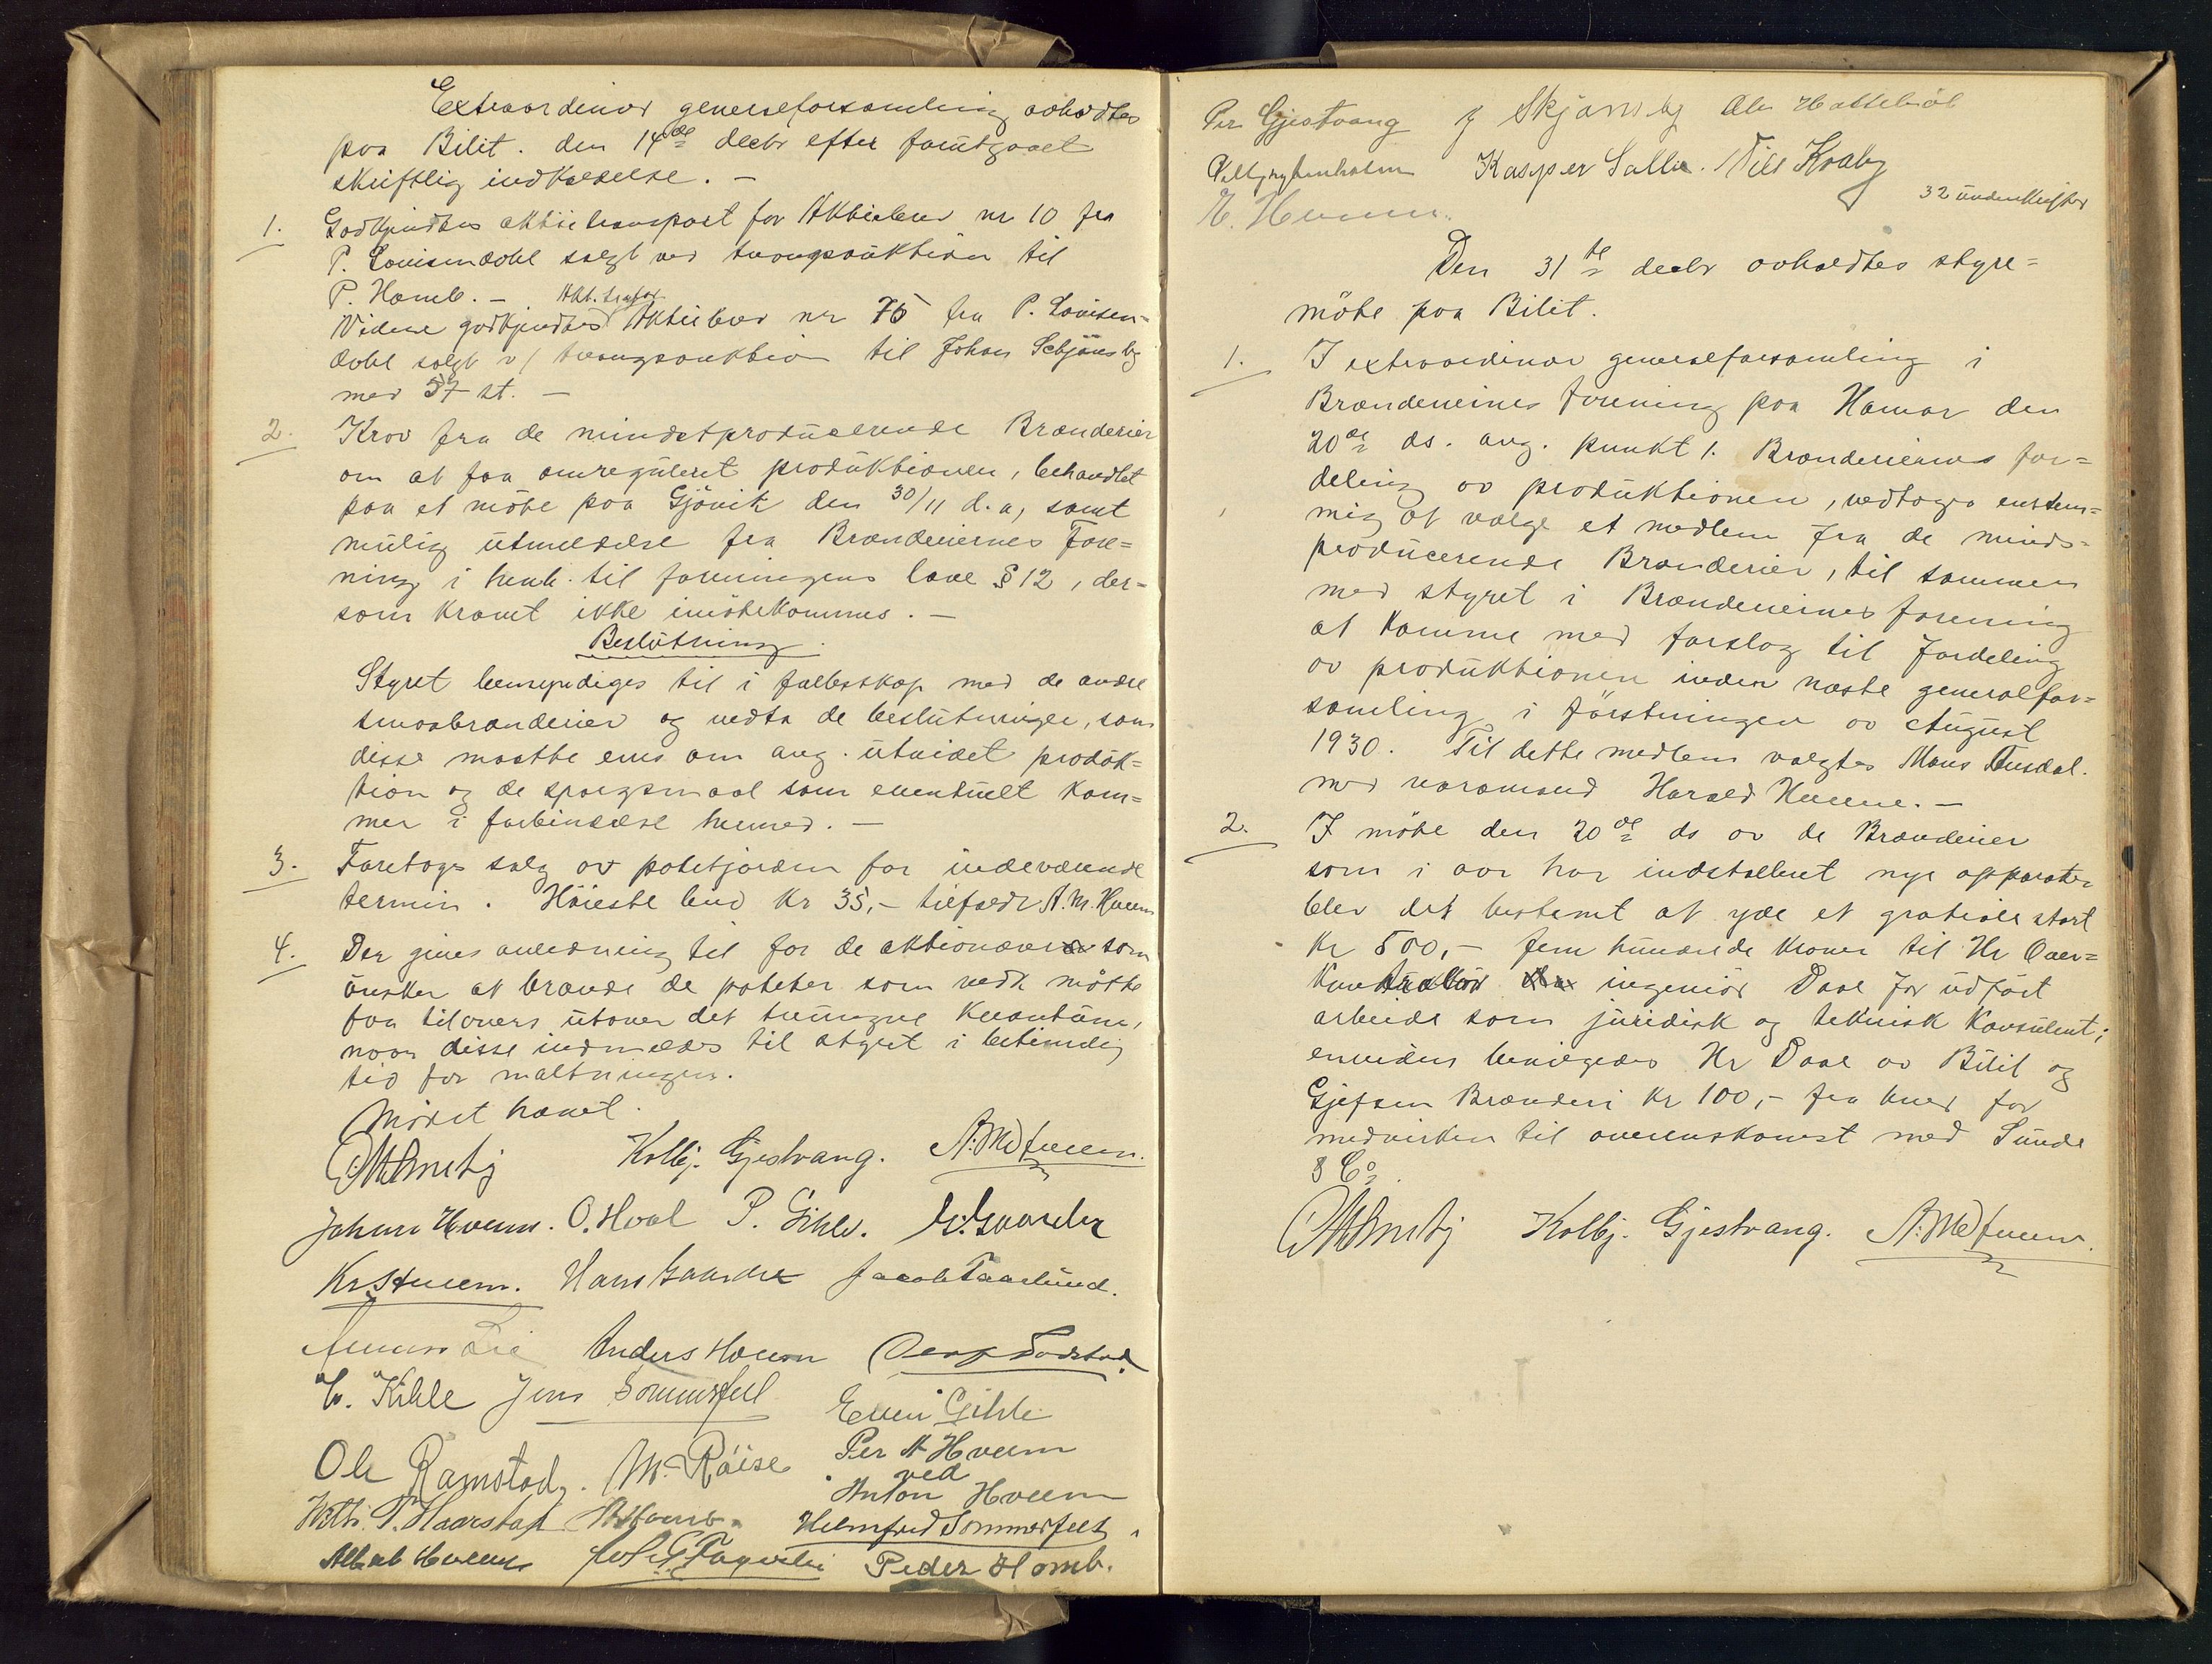 Extraordinær generalforsamling avholdtes
paa Bilit. den 14de decbr efter forutgaaet
skriftlig indkaldelse. —
1. Godkjendtes aktietransport for Aktiebrev nr 10 fra
P. Louisendahl solgt ved tvangsauktion til
P. Homb. —
Videre godkjendtes Akt. transp. Aktiebrev nr 75 fra P. Louisen-
dahl solgt v/ tvangsauktion til Johan Schjønsby
med 57 st. —
2. Krav fra de mindstproducerende Brænderier
om at faa omreguleret produktionen, behandlet
paa et møte paa Gjøvik den 30/11 d.a, samt
mulig utmeldelse fra Brænderiernes Fore=
ning i henh. til foreningens love § 12, der=
som kravet ikke imøtekommes. —
Beslutning.
Styret bemyndiges til i fællesskap med de andre
smaabrænderier og vedta de beslutninger, som
disse maatte enes om ang. utvidet produk=
tion og de spørgsmaal som eventuelt kom=
mer i forbindelse hermed. —
3. Foretoges salg av potetjorden for indeværende
termin. Høieste bud kr 35,- tilfaldt A. M. Hveem
4. Der gives anledning til for de aktionærer som
ønsker at brænde de poteter som vedk. maatte
faa tilovers utover det tvungne kvantum,
naar disse indmeldes til styret i betimelig
tid før maltningen.
Møtet hævet.
Kolbj. Gjestvang. A. M. Hveem.
Johan Hveem. O. Hoel P. Gihle. G. Gaarder
Kr. Hveem. Hans Gaarder Jacob Paarlund.
Anders Hveem
E. Kihle Jens Sommerfeld Even Gihle
Ole Ramstad. M. Røise Per A Hveem
ved
Anton Hveem
P. Haarstad P. Homb. Helmfred Sommerfelt
Albert Hveem Peder Homb.
Per Gjestvang J Skjønsby Ole Hattelid
Kasper Salle. Nils Kraby
E. Hveem. 32 underskrifter
Den 31te decbr avholdtes styre=
møte paa Bilit.
1. I extraordinær generalforsamling i
Brænderienes forening paa Hamar den
20de ds. ang. punkt 1. Brænderienes for=
deling av produktionen, vedtoges enstem=
mig at vælge et medlem fra de minds=
producerende Brænderier, til sammen
med styret i Brænderienes forening
at komme med forslag til fordeling
av produktionen inden næste generalfor=
samling i førstningen av August
1930. Til dette medlem valgtes Hans Tusdal.
med varamand Harald Hveem. —
2. I møte den 20de ds av de Brænderier
som i aar har indstalleret nye apparater
blev det bestemt at yde et gratiale stort
Kr 500,- fem hundrede kroner til Hr Over=
kontrollør ingeniør Dahl for udført
arbeide som juridisk og teknisk konsulent;
envidere bevilgedes Hr Dahl av Bilit og
Gjefsen Brænderi kr 100,- fra hver for
medvirken til overenskomst med Sunde
& Co.
Kolbj. Gjestvang. A. M. Hveem.